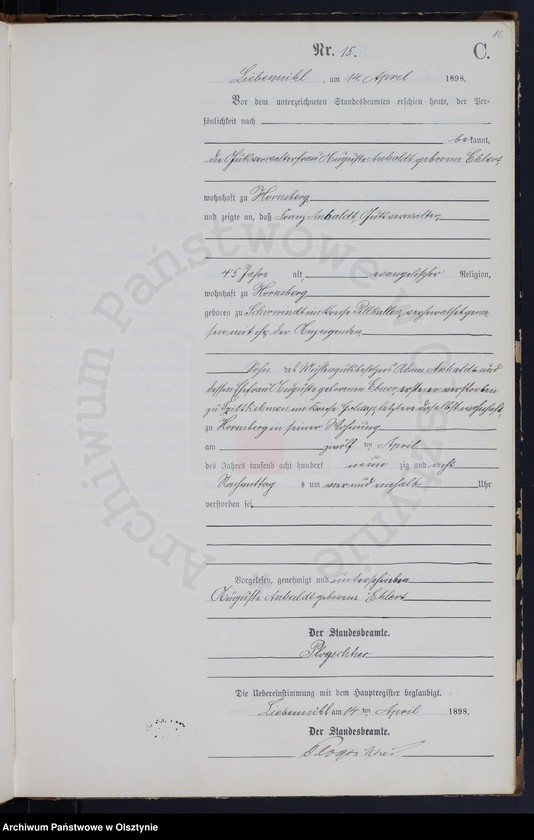 15
Nr. 15.
C.
Liebemühl, am 14. April 1898.
Vor dem unterzeichneten Standesbeamten erschien heute, der Per-
sönlichkeit nach
bekannt,
die Gutsverwalterfrau Auguste Anhaldt geborene Ehlert
wohnhaft zu Hornsberg
und zeigte an, daß Franz Anhaldt, Gutsverwalter,
45 Jahre alt, evangelischer Religion,
wohnhaft zu Hornsberg
geboren zu Schirwindt im Kreise Pillkallen, verheirathet gewe
sen mit der Anzeigenden
Sohn des Adam Anhaldt und
dessen Ehefrau Auguste geborenen ersterer verstorben
zu im Kreise Goldap, letztere daselbst wohnhaft,
zu Hornsberg in seiner Wohnung
am zwölf ten April
des Jahres tausend acht hundert neun zig und acht
Nachmittag s um vier und einhalb Uhr
verstorben sei
Vorgelesen, genehmigt und unterschrieben
Auguste Anhaldt geborene Ehlert
Der Standesbeamte.
Plogschties
Die Uebereinstimmung mit dem Hauptregister beglaubigt.
Liebemühl am 14 ten April 1898.
Der Standesbeamte.
Plogschties
Archiwum Państwowe w Olsztynie
Archiwum Państwowe w Olsztynie